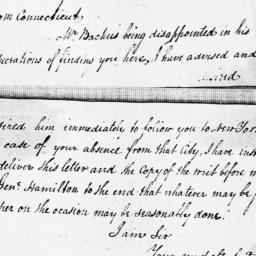 om Connecticut.
Mr. Backus being disappointed in his
pectations of finding you here, I have advised and
sired
sired him immediately to follow you to New York
case of your absence from that City, I have inst
deliver this letter and the Copy of the writ before m
Genl. Hamilton to the end that whatever may be f
her on the occasion may be seasonably done.
I am Sir